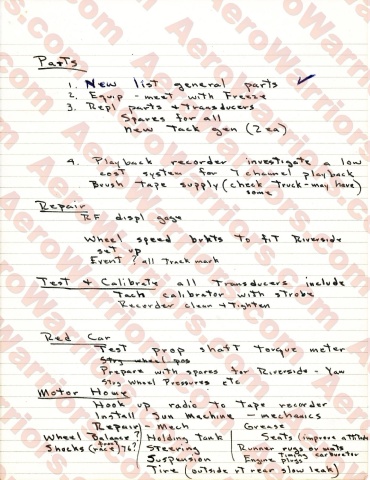 Parts
1. New list general parts ✓
2. Equip - meet with Freeze
3. Repl parts + Transducers
Spares for all
New Tach gen (2 ea)
4. Playback recorder investigate a low
cost system for 7 channel playback
Brush tape supply (check Truck - may have)
some
Repair
RF displ gage
Wheel speed brkts to fit Riverside
set up
Event? all Track mark
Test + Calibrate all Transducers include
Tach calibrator with strobe
Recorder clean + Tighten
Red Car
Test prop shaft torque meter
Strg wheel pos
Prepare with spares for Riverside - Yaw
Strg Wheel Pressures etc
Motor Home
Hook up radio to Tape recorder
Install Sun Machine - mechanics
Repair - Mech Grease
Wheel Balance? Holding Tank Seats (improve attitude
Shocks (from race) 76? Steering Runner rugs or mats
Suspension Engine Timing carburator plugs
Tire (outside rt rear slow leak)
AeroWarriors.com